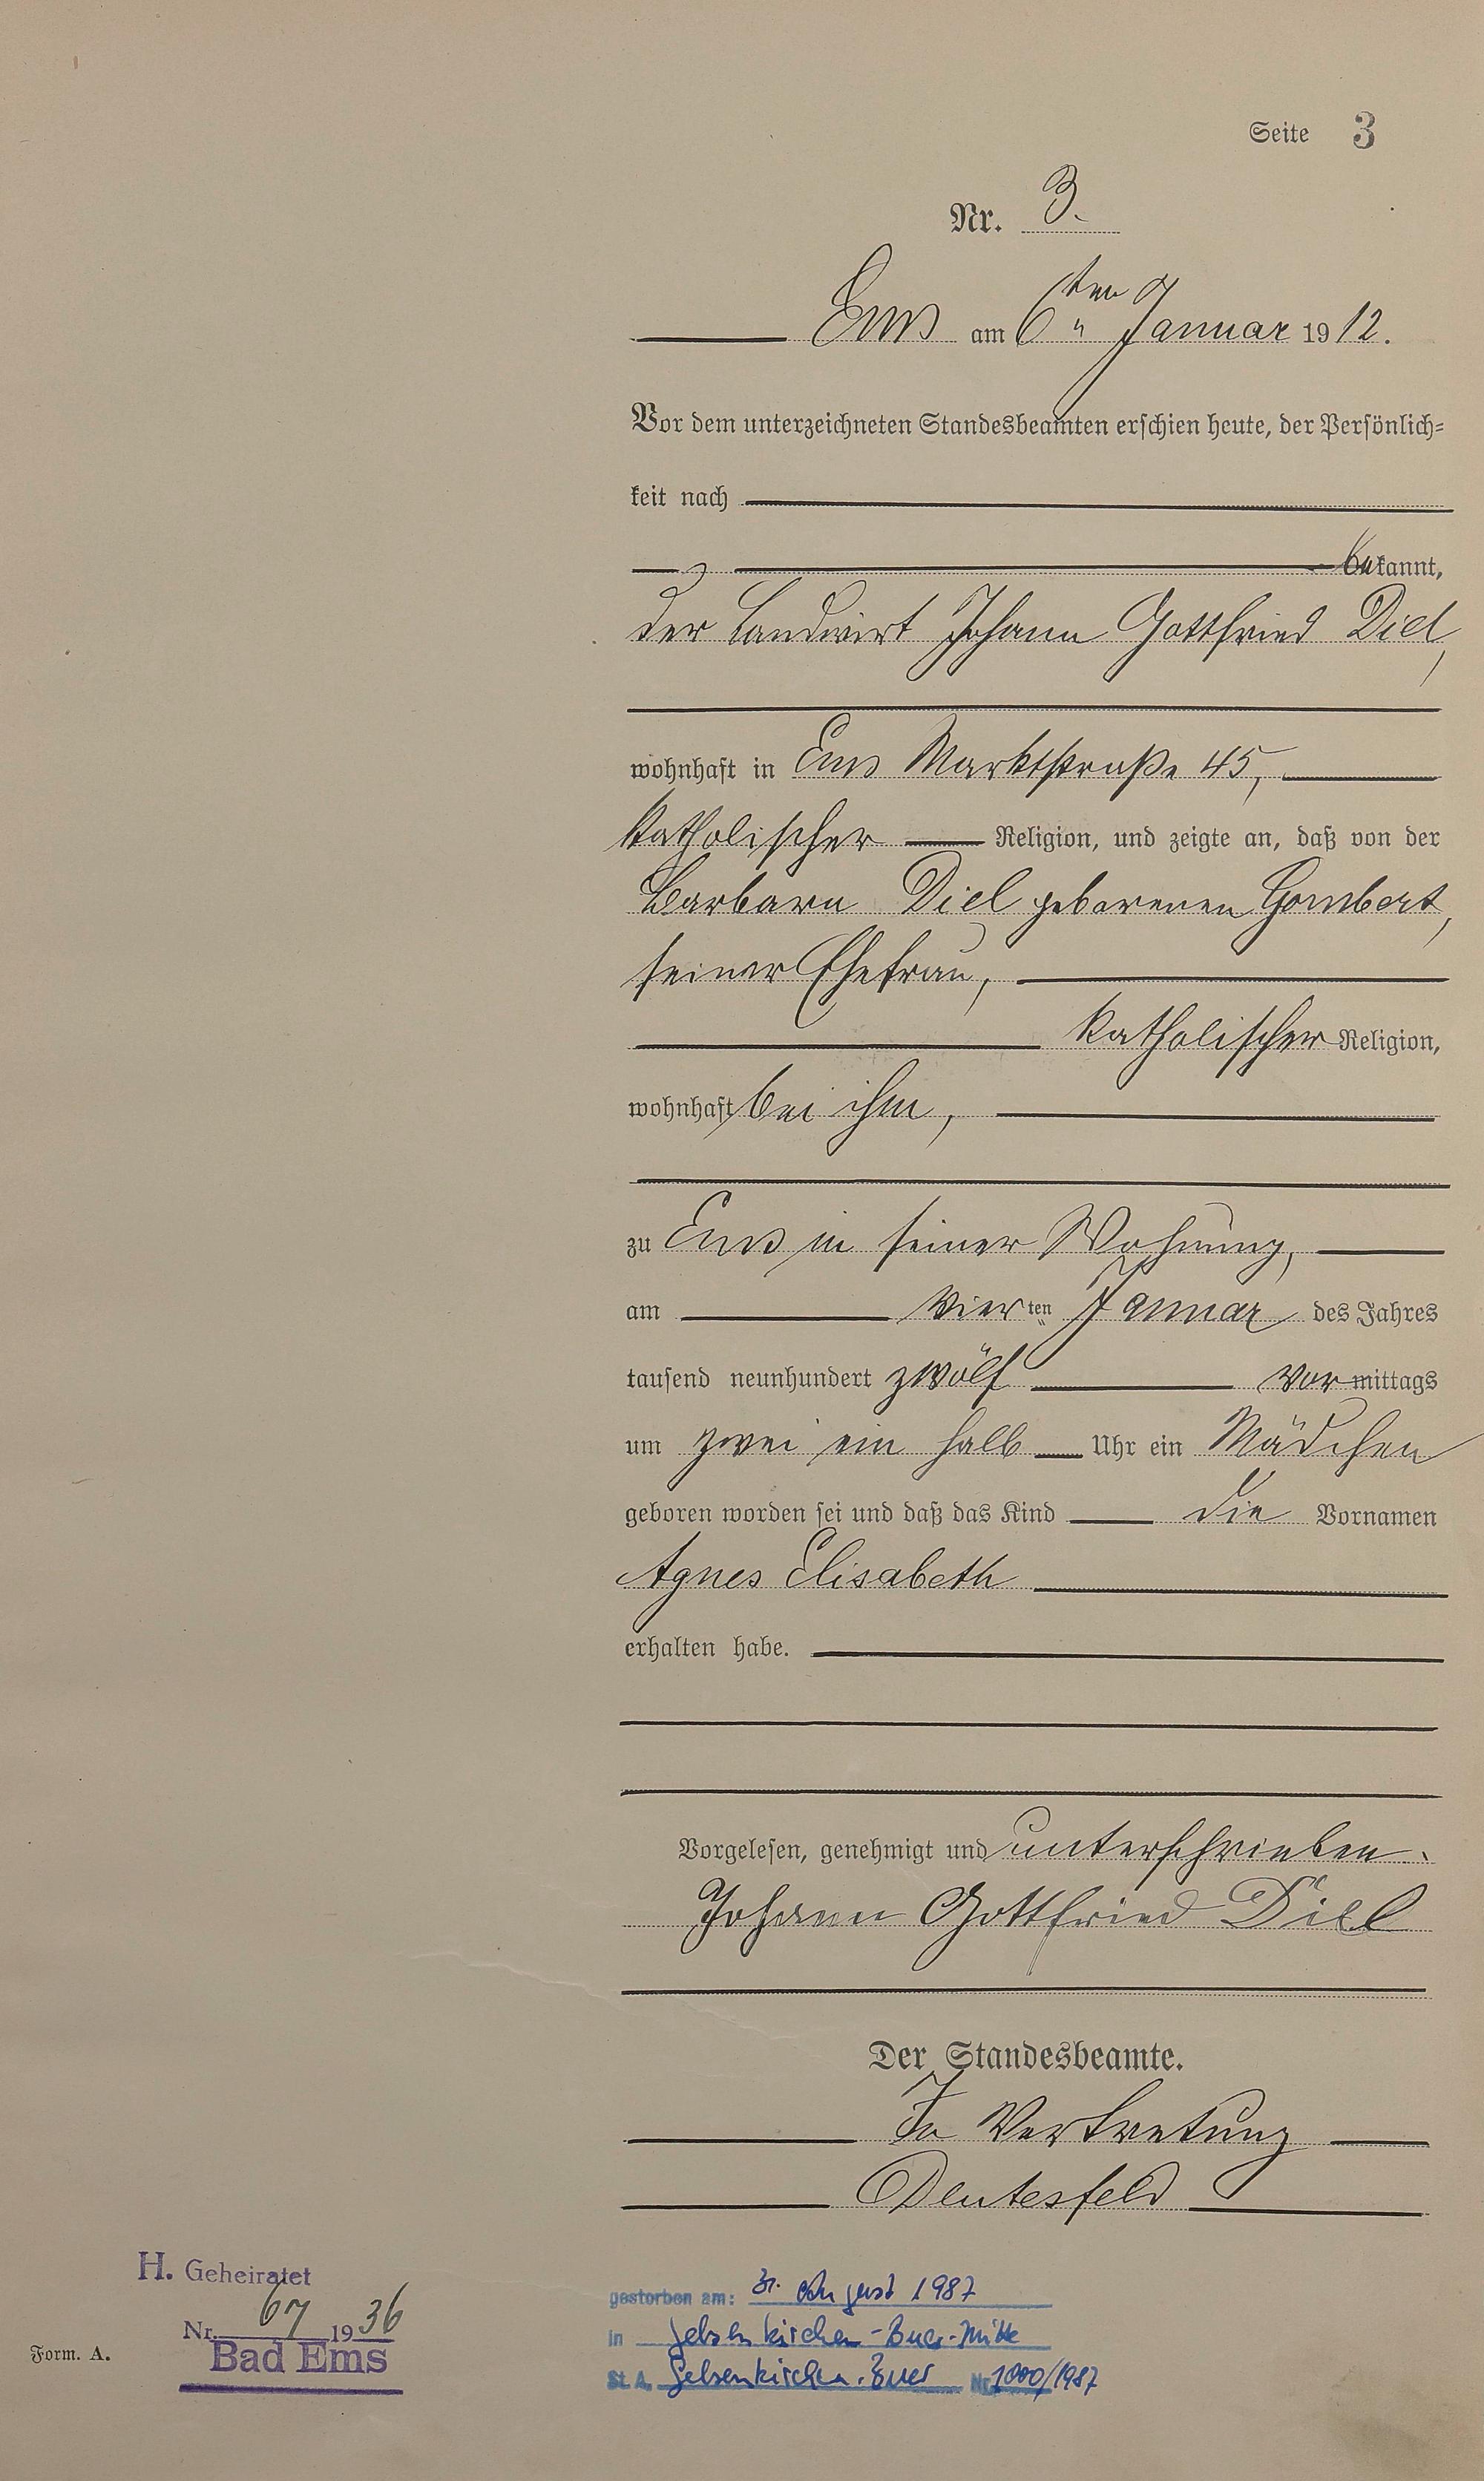 Seite 3
Nr. 3.
Ems am 6ten Januar 1912.
Vor dem unterzeichneten Standesbeamten erschien heute, der Persönlich=
keit nach
bekannt,
der Landwirt Johann Gottfried Diel,
wohnhaft in Ems Marktstraße 45,
katholischer Religion, und zeigte an, daß von der
Barbara Diel geborenen Gombert,
seiner Ehefrau,
katholischer Religion,
wohnhaft bei ihm,
zu Ems in seiner Wohnung,
am vierten Januar des Jahres
tausend neunhundert zwölf vormittags
um zwei ein halb Uhr ein Mädchen
geboren worden sei und daß das Kind die Vornamen
Agnes Elisabeth
erhalten habe.
Vorgelesen, genehmigt und unterschrieben.
Johann Gottfried Diel
Der Standesbeamte.
In Vertretung
H. Geheiratet
Nr. 67 1936
Bad Ems
Form. A.
gestorben am: August 1987
in Gelsenkirchen-Buer-Mitte
St. A. Gelsenkirchen-Buer Nr. 1000/1987